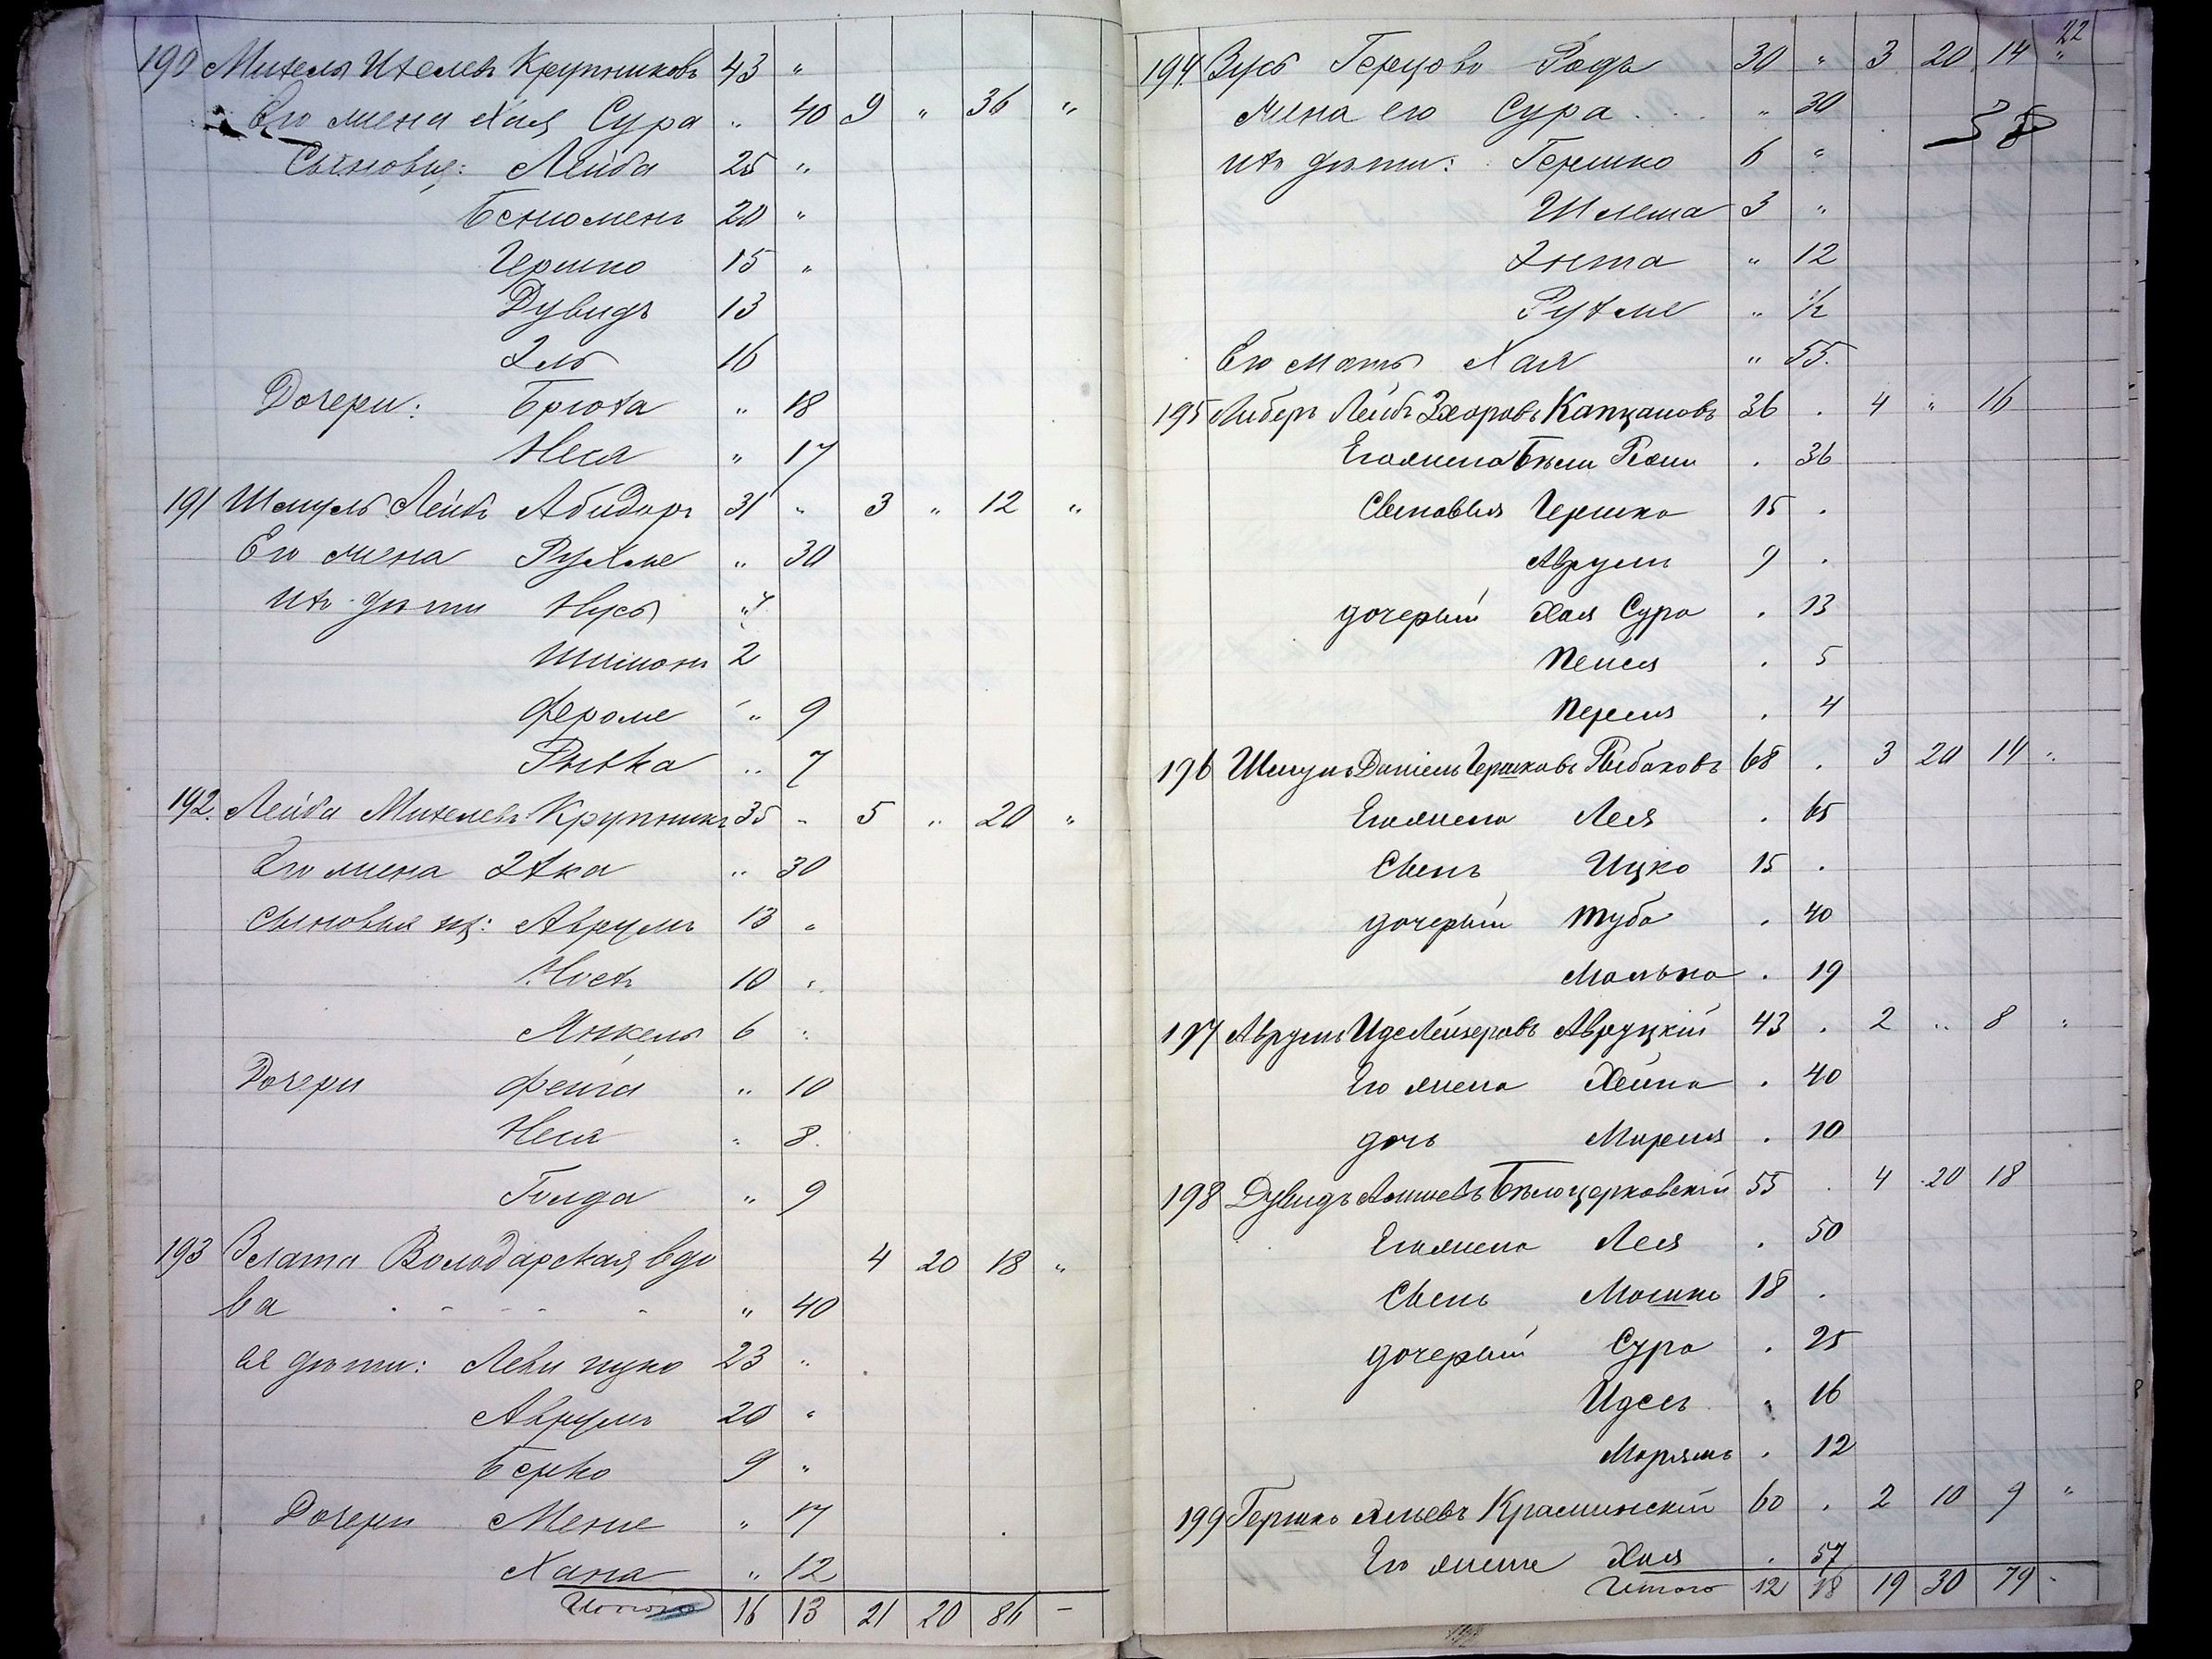 190 Михель Ихелев Крупников 43 "
Его жена Хая Сура " 40 9 " 36 "
Сыновья: Лейба 25 "
Бениоменъ 20 "
Гершко 15 "
Дувидъ 13
Эль 16
Дочери: Брюха " 18
Неся " 17
191 Шмуль Лейбъ Абидоръ 31 " 3 " 12 "
Его жена Рухле " 30
ихъ дѣти Нусь "
Шимонъ 2
Фероме " 9
Рывка " 7
192. Лейба Михелевъ Крупникъ 35 " 5 " 20 "
Его жена Эхка " 30
Сыновья их: Аврумъ 13 "
10 "
Янкель 6 "
Дочери Фейга " 10
Неся " 8.
Голда " 9
193 Злата Володарская вдо 4 20 18 "
ва " 40
ея дѣти: Леви ицко 23 "
Аврумъ 20 "
Берко 9 "
Дочери Мене " 17
Хана " 12
Итого 16 13 21 20 86 -
22
194. Зусь Герцовъ Родъ 30 " 3 20 14 "
жена его Сура " 30
ихъ дѣти: Гершко 6 "
Шлема 3 "
Энта " 12
Рухле " 1/2
Его мать Хая " 55.
195 Либеръ Лейбъ Капцановъ 36 . 4 " 16
Его жена Бѣли . 36
Сыновья Гершко 15 .
Аврумъ 9 .
дочерый Хая Сура . 13
Пейся . 5
Перля . 4
196 Шмуль Даніель Гершковъ Рыбаковъ 68 . 3 20 14 "
Его жена Лея . 65
Сынъ Ицко 15 .
дочерый Туба . 40
Малька . 19
197 Аврумъ Иделейзеровъ Авруцкій 43 . 2 " 8 "
Его жена Хейна . 40
дочь Мирля . 10
198 Дувидъ Бѣлоцерковскій 55 . 4 20 18
Его жена Лея . 50
Сынъ Мошко 18 .
дочерый Сура . 25
Идесъ . 16
Марямъ . 12
199 Гершко Краминскій 60 . 2 10 9 "
Его жена Хая . 57
Итого 12 18 19 30 79 -